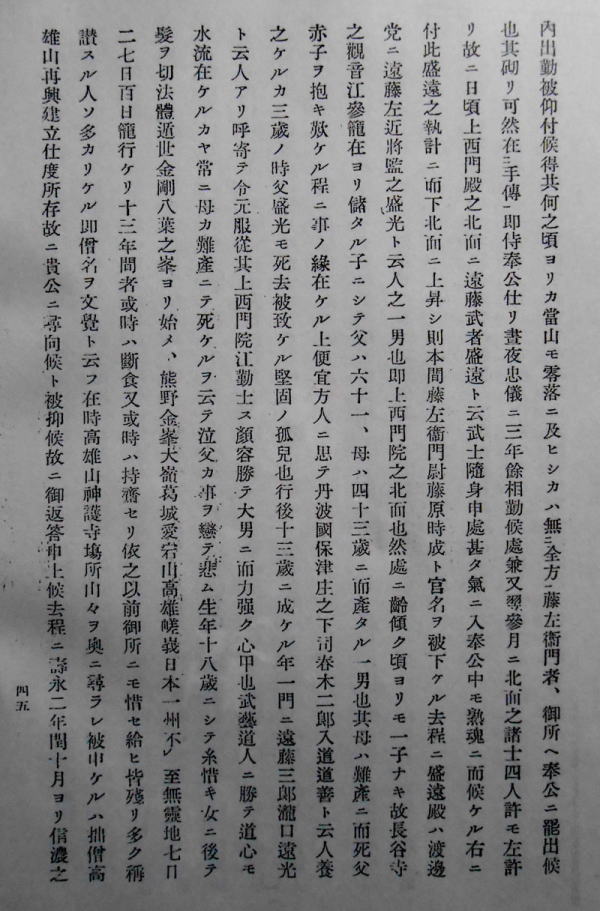 內出勤被仰付候得其何之頃ヨリカ當山モ零落ニ及ヒシカハ無㆓全方㆒藤左衞門者、御所ヘ奉公ニ罷出候
也其砌リ可然在㆓手傳㆒即侍奉公仕リ晝夜忠儀ニ三年餘相勤候處兼又翌參月ニ北面之諸士四人許モ左許
リ故ニ日頃上西門殿之北面ニ遠藤武者盛遠ト云武士隨身申處甚タ氣ニ入奉公中モ熟魂ニ而候ケル右ニ
付此盛遠之執計ニ而下北面ニ上昇シ則本間藤左衞門尉藤原時成ト官名ヲ被下ケル去程ニ盛遠殿ハ渡邊
党ニ遠藤左近將監之盛光ト云人之一男也即上西門院之北面也然處ニ齡傾ク頃ヨリモ一子ナキ故長谷寺
之觀音江參籠在ヨリ儲タル子ニシテ父ハ六十一、母ハ四十三歲ニ而產タル一男也其母ハ難產ニ而死父
赤子ヲ抱キ歎ケル程ニ事ノ緣在ケル上便宜方人ニ思テ丹波國保津庄之下司春木二郞入道道善ト云人養
之ケルカ三歲ノ時父盛光モ死去被致ケル堅固ノ孤兒也行後十三歲ニ成ケル年一門ニ遠藤三郞瀧口遠光
ト云人アリ呼寄テ令元服從其上西門院江勤士ス顏容勝テ大男ニ而力强ク心甲也武藝道人ニ勝テ道心モ
水流在ケルカヤ常ニ母カ難產ニテ死ケルヲ云テ泣父カ事ヲ戀テ悲ム生年十八歲ニシテ糸惜キ女ニ後テ
髮ヲ切法體遁世金剛八葉之峯ヨリ始メ、熊野金峯大嶺葛城愛宕山高雄嵯峩日本一州不㆑至無靈地七日
二七日百日籠行ケリ十三年間者或時ハ斷食又或時ハ持齋セリ依之以前御所ニモ惜セ給ヒ皆殘リ多ク稱
讃スル人ソ多カリケル即僧名ヲ文覺ト云フ在時高雄山神護寺塲所山々ヲ奧ニ尋ラレ被申ケルハ拙僧高
雄山再興建立仕度所存故ニ貴公ニ尋向候ト被抑候故ニ御返答申上候去程ニ壽永二年閏十月ヨリ信濃之
四五